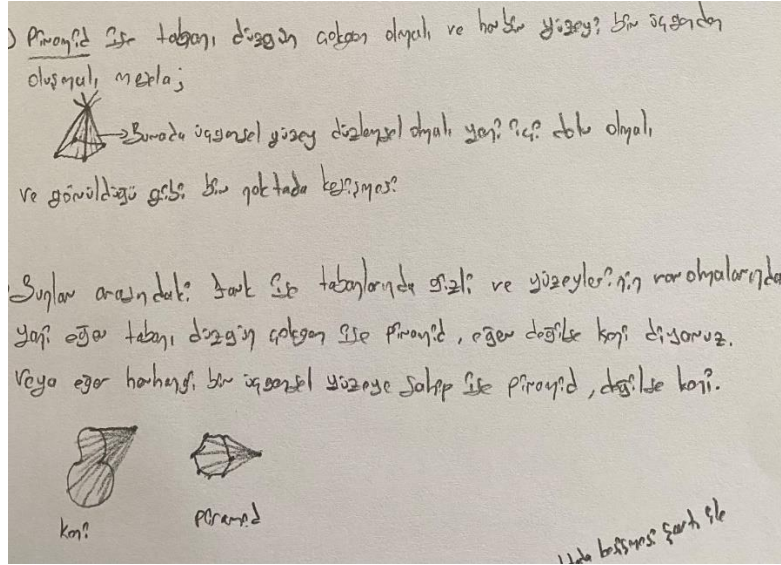 ) Piramid ise tabanı düzgün çokgen olmalı ve her bir yüzeyi bir üçgenden
oluşmalı, mesela;
→ Burada üçgensel yüzey düzlemsel olmalı yani içi dolu olmalı
ve görüldüğü gibi bir noktada kesişmesi
Bunlar arasındaki fark ise tabanlarında gizli ve yüzeylerinin var olmalarında
yani eğer tabanı düzgün çokgen ise piramid, eğer değilse koni diyoruz.
Veya eğer herhangi bir üçgensel yüzeye sahip ise piramid, değilse koni.
koni
piramid
şartı ile